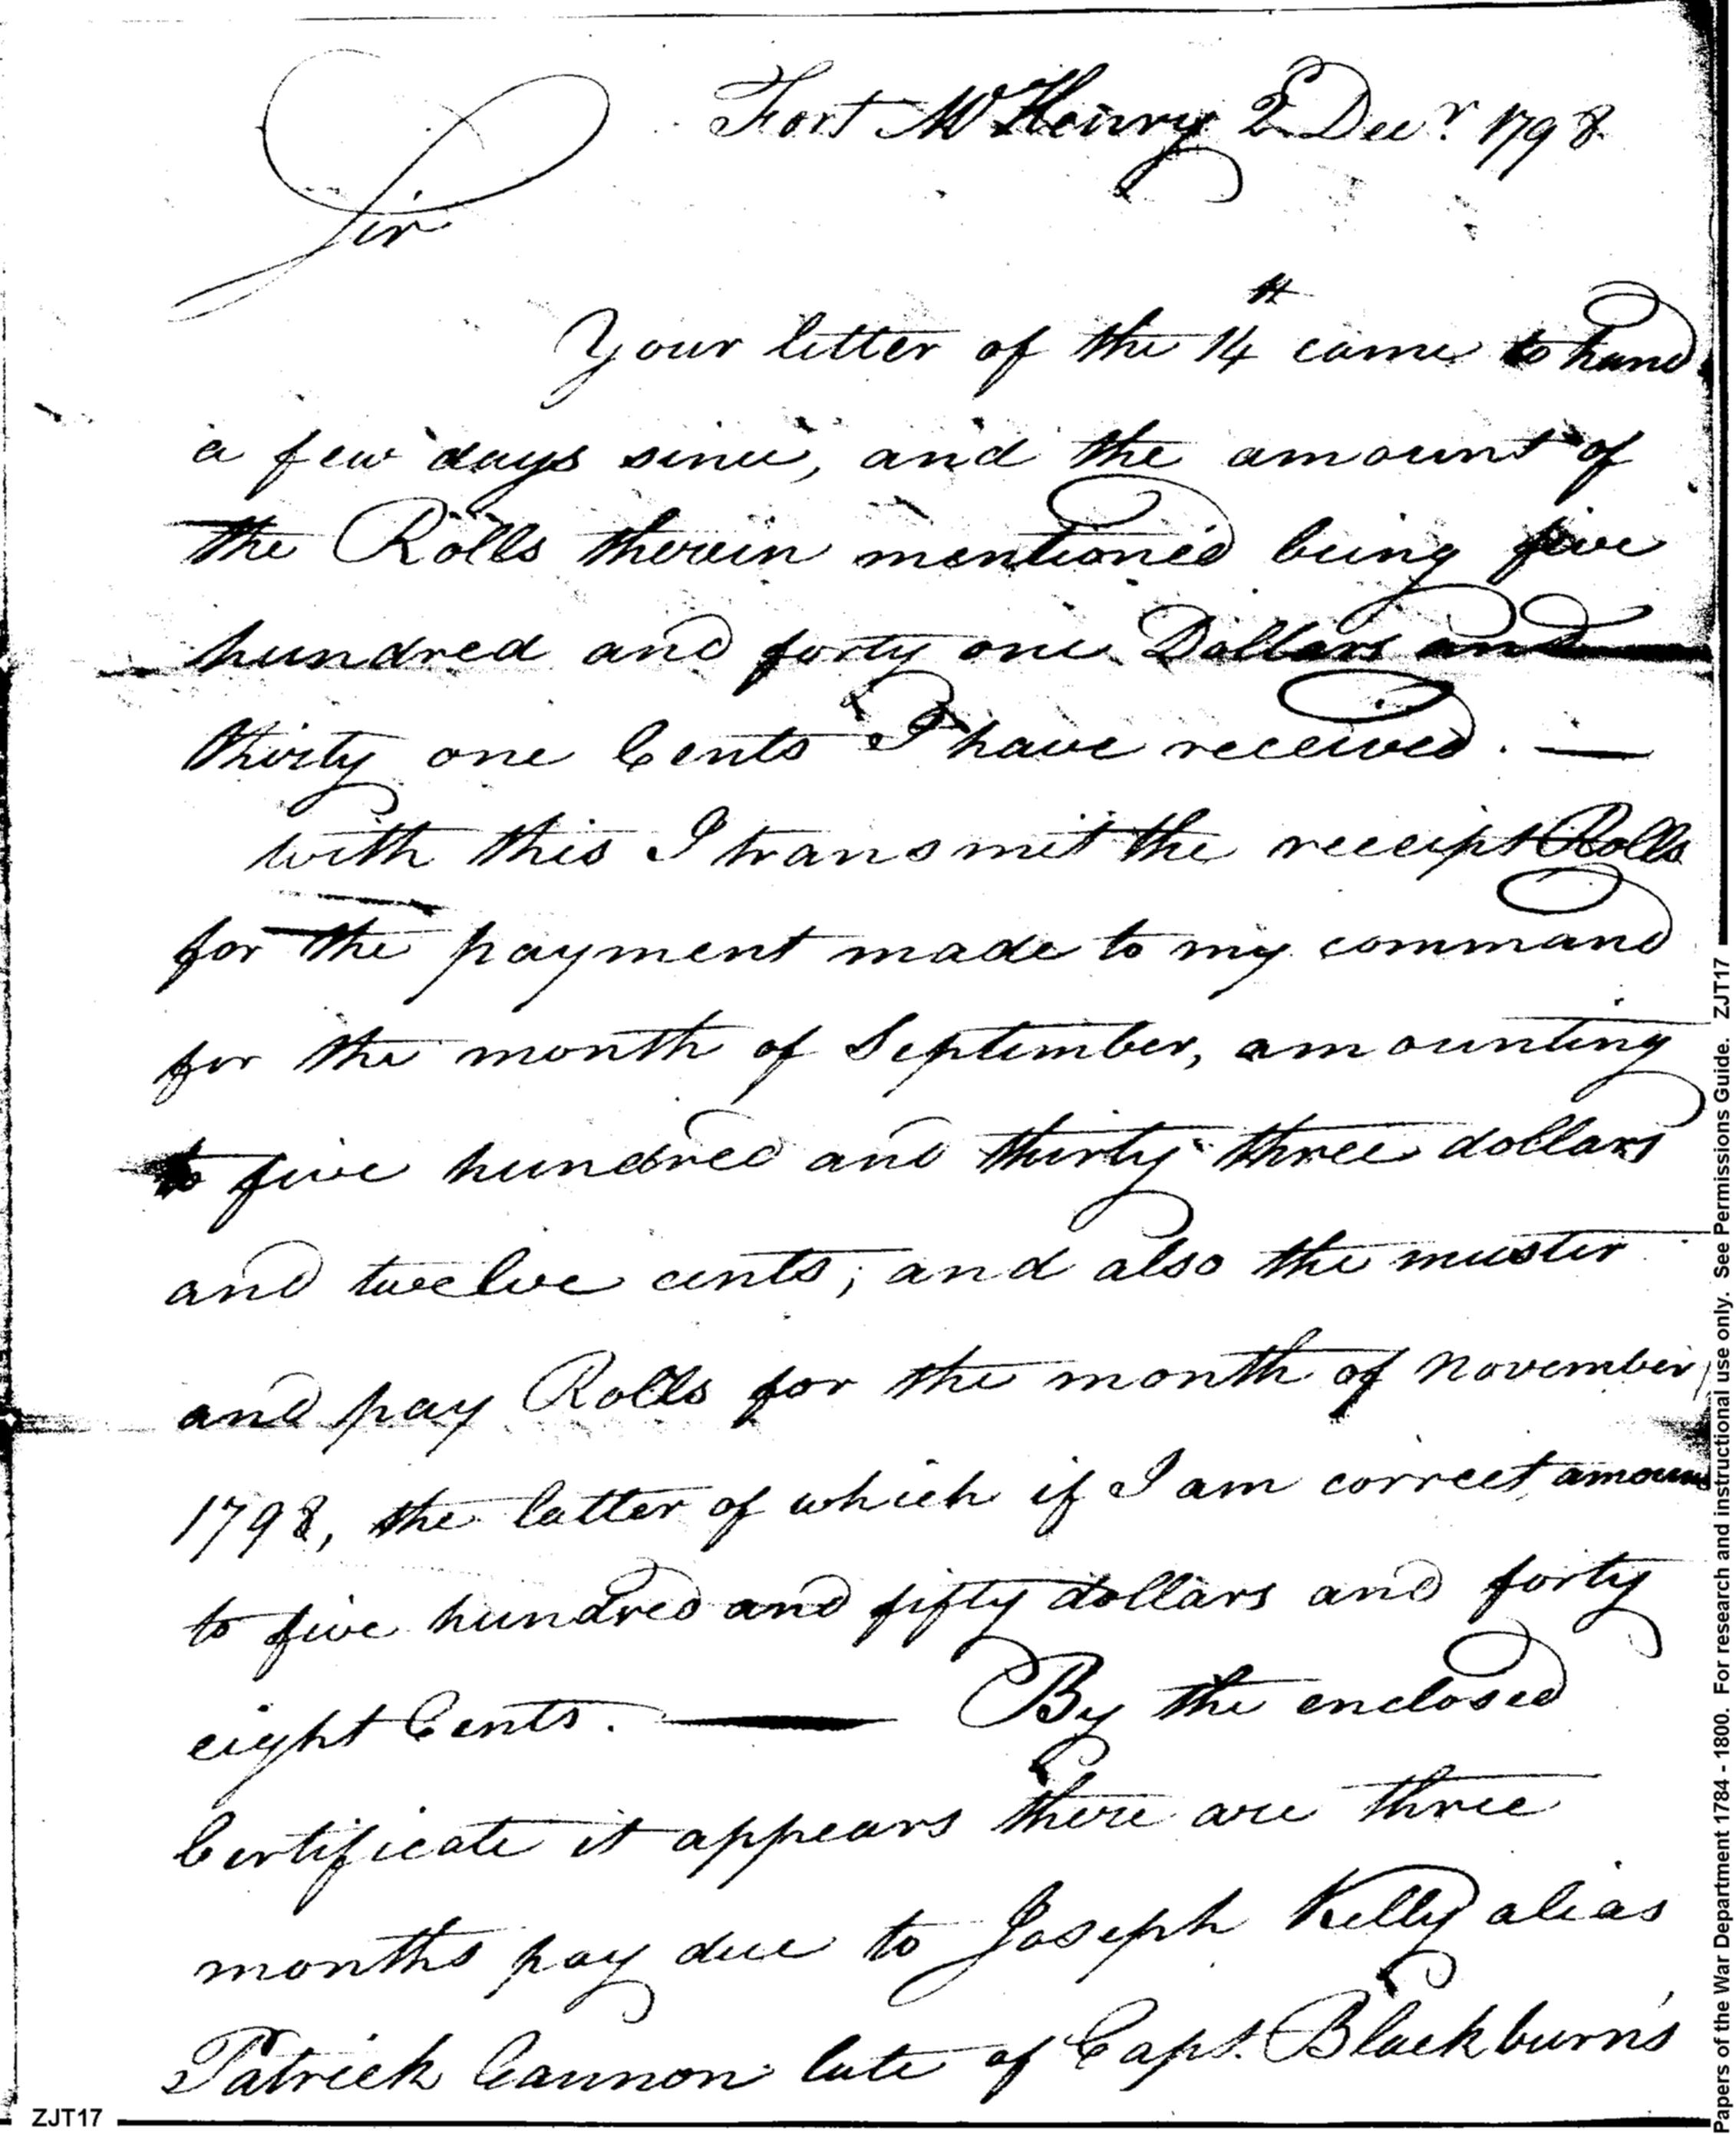 Fort McHenry 2 Decr. 1798
Sir
Your letter of the 14th came to hand
a few days since, and the amount of
the Rolls therein mentioned being five
hundred and forty one Dollars and
thirty one Cents I have received. —
with this I transmit the receipt Rolls
for the payment made to my command
for the month of September, amounting
to five hundred and thirty three dollars
and twelve cents; and also the muster
and pay Rolls for the month of November
1798, the latter of which if I am correct amount
to five hundred and fifty dollars and forty
eight Cents. — By the enclosed
Certificate it appears there are three
months pay due to Joseph Kelly alias
Patrick Cannon late of Capt. Blackburn's
ZJT17
Papers of the War Department 1784 - 1800. For research and instructional use only. See Permissions Guide. ZJT17